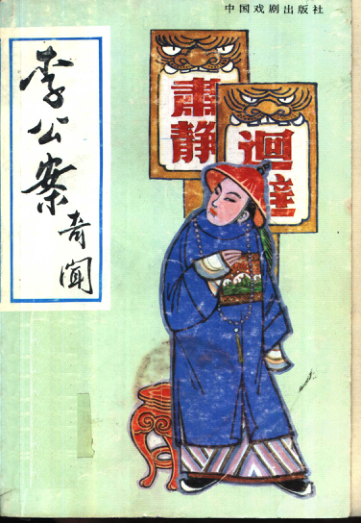 中国戏剧出版社
李公案
奇闻
肃静
迴避